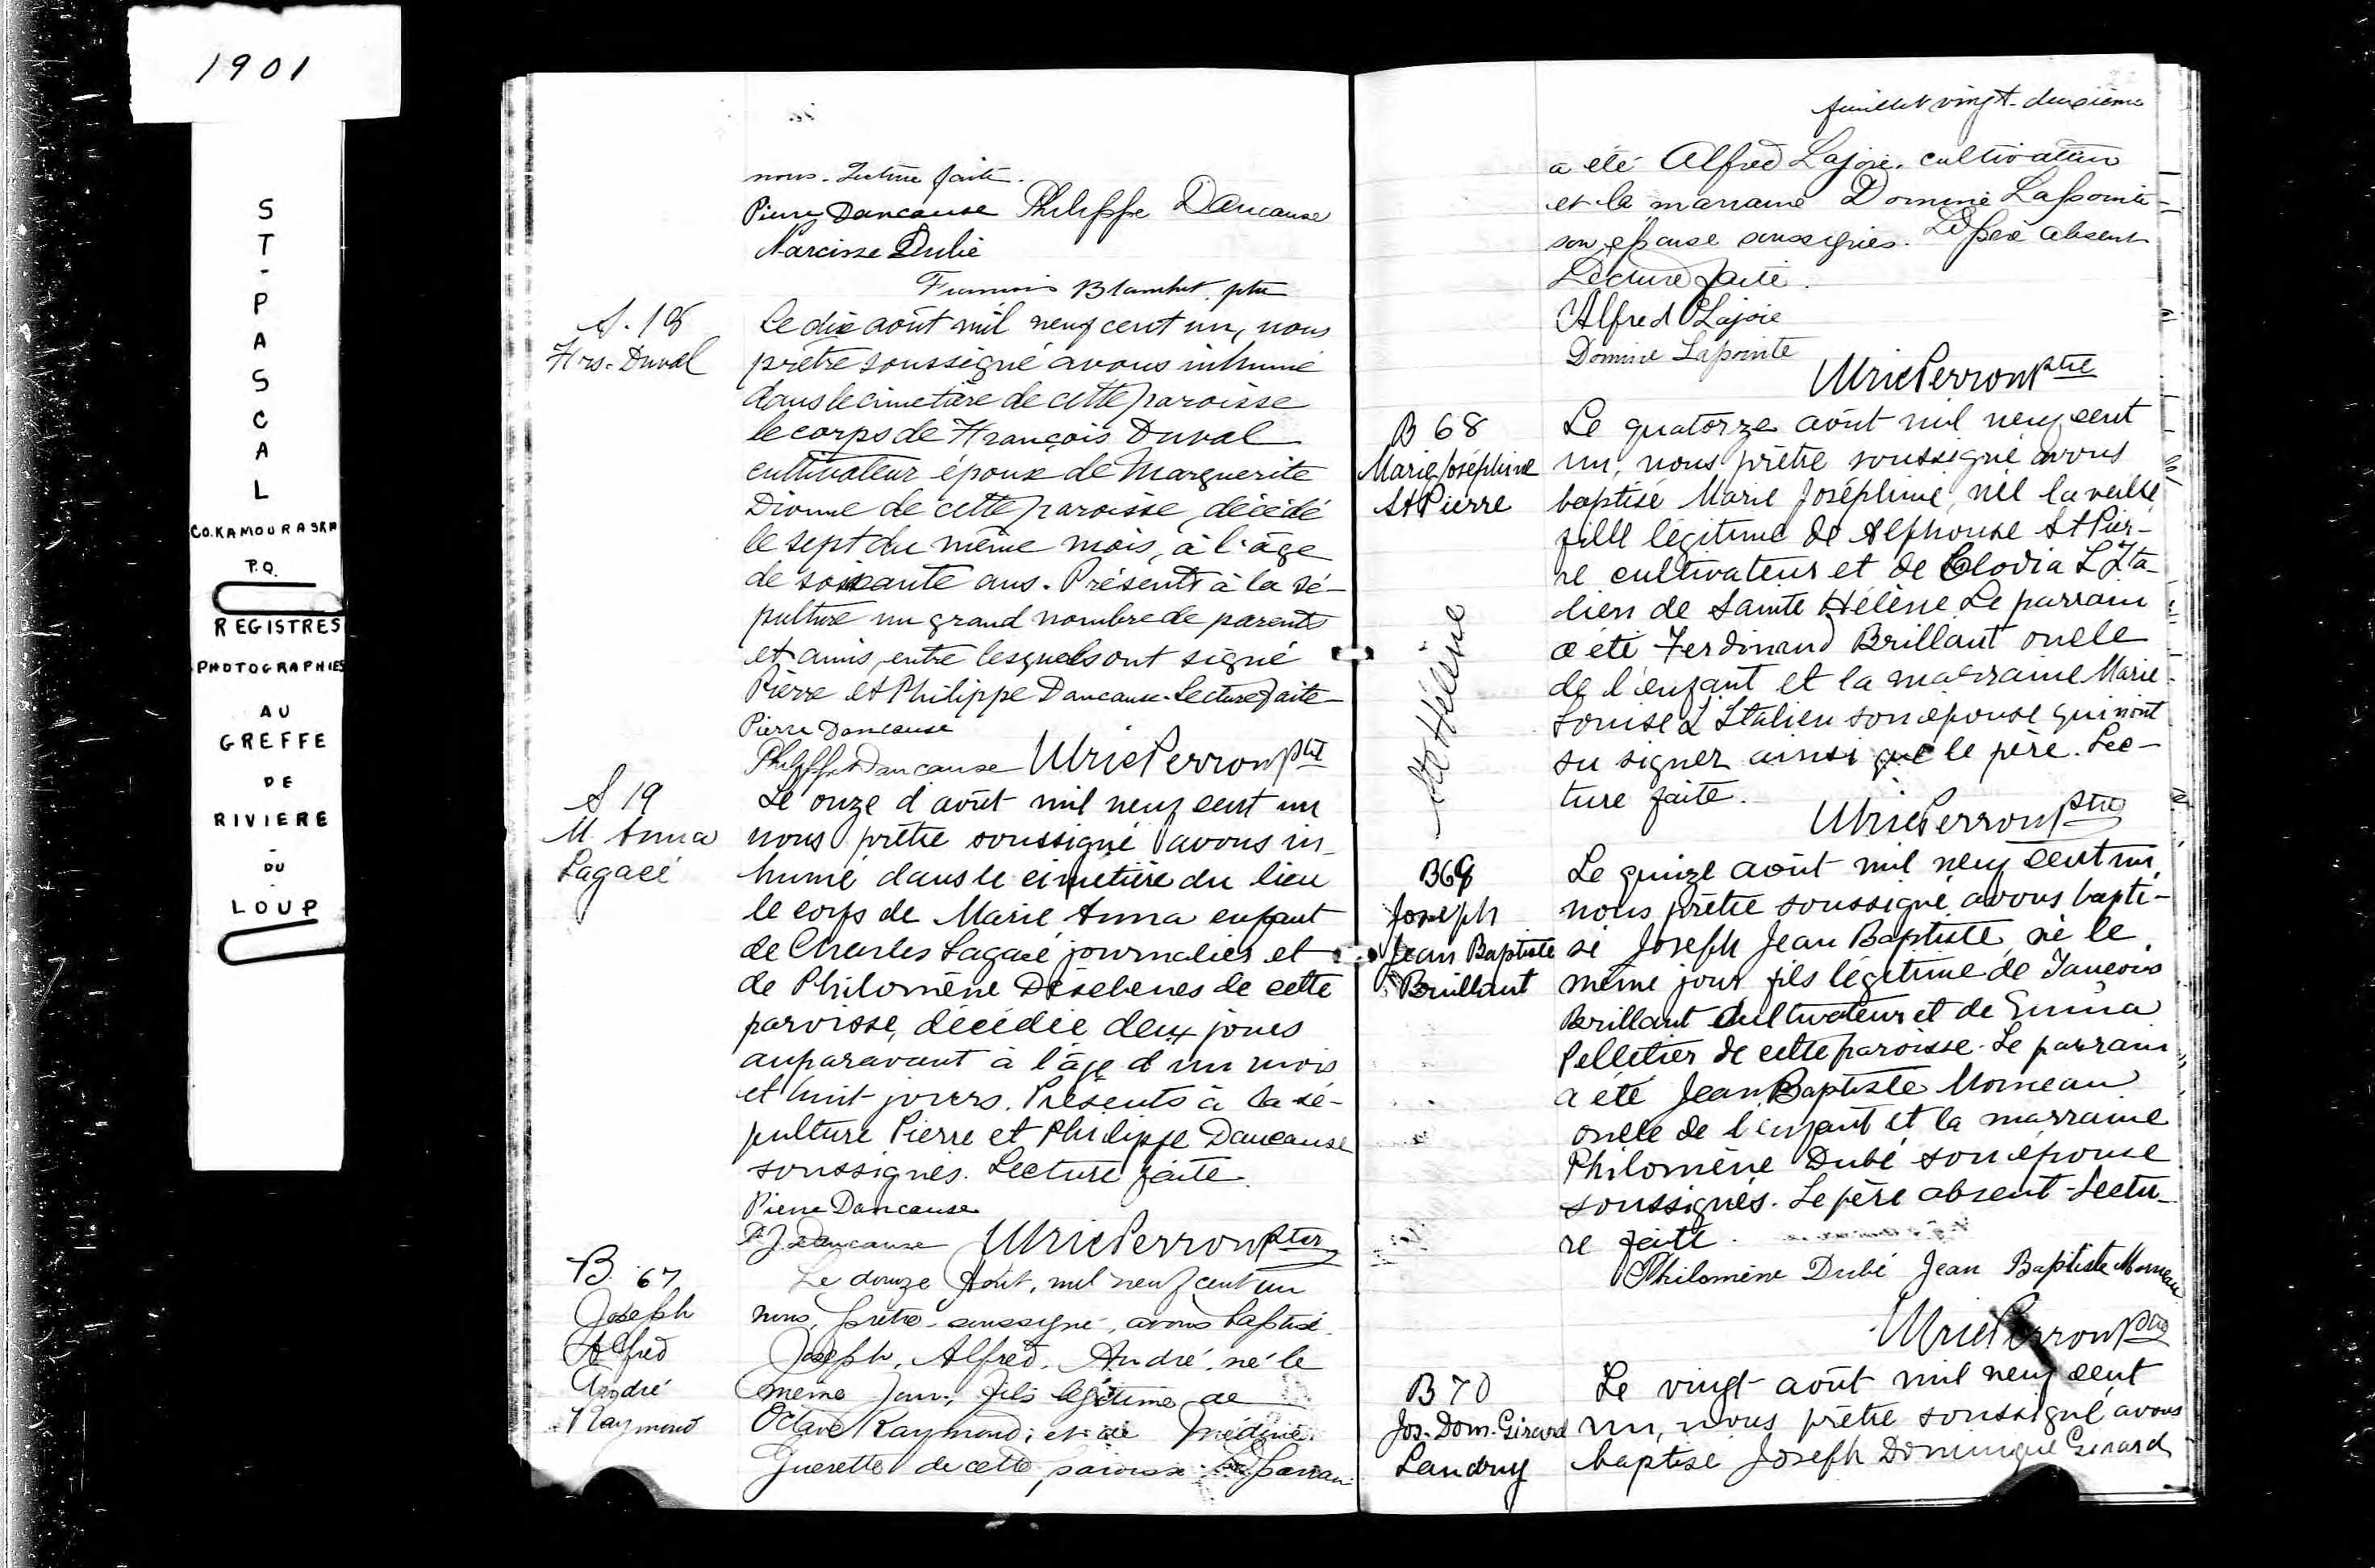 1901
S
T
-
P
A
S
C
A
L
CO. KAMOURASKA
P.Q.
REGISTRES
PHOTOGRAPHIES
AU
GREFFE
DE
RIVIERE
-
DU
-
LOUP
nous. Lecture faite.
Pierre Dancause Philippe Dancause
Narcisse Dubé
ptre
S. 18
Frs. Duval
Le dix août mil neuf cent un, nous
prêtre soussigné avons inhumé
dans le cimetière de cette paroisse
le corps de François Duval
cultivateur époux de Marguerite
Dionne de cette paroisse, décédé
le sept du même mois, à l'âge
de soixante ans. Présents à la sé-
pulture un grand nombre de parents
et amis, entre lesquels ont signé
Pierre et Philippe Dancause. Lecture faite
Pierre Dancause
Philippe Dancause Ulric Perron ptre
S 19
M. Anna
Lagacé
Le onze d'août mil neuf cent un
nous prêtre soussigné avons in-
humé dans le cimetière du lieu
le corps de Marie Anna enfant
de Charles Lagacé journalier et
de Philomène Déschenes de cette
paroisse, décédée deux jours
auparavant à l'âge d'un mois
et huit jours. Présents à la sé-
pulture Pierre et Philippe Dancause
soussignés. Lecture faite.
Pierre Dancause
P J Dancause Ulric Perron ptre
B. 67
Joseph
Alfred
André
Raymond
Le douze Août, mil neuf cent un
nous, prêtre soussigné, avons baptisé
Joseph, Alfred, André, né le
même jour, fils légitime de
Octave Raymond, et de
Guerette de cette paroisse. Le parrain
feuillet vingt-deuxième
a été Alfred Lajoie, cultivateur
et la marraine Domine Lapointe
son épouse soussignés. Le père absent
Lecture faite.
Alfred Lajoie
Domine Lapointe
Ulric Perron ptre
B 68
Marie Joséphine
St Pierre
Ste Hélène
Le quatorze août mil neuf cent
un, nous prêtre soussigné avons
baptisé Marie Joséphine, née la veille
fille légitime de Alphonse St Pier-
re cultivateur et de Clodia L'Ita-
lien de Sainte Hélène Le parrain
a été Ferdinand Brillant oncle
de l'enfant et la marraine Marie
Louise L'Italien son épouse qui n'ont
su signer ainsi que le père. Lec-
ture faite.
Ulric Perron ptre
B69
Joseph
Jean Baptiste
Brillant
Le quinze août mil neuf cent un,
nous prêtre soussigné avons bapti-
sé Joseph Jean Baptiste, né le
même jour fils légitime de
Brillant cultivateur et de Emma
Pelletier de cette paroisse. Le parrain
a été Jean Baptiste Morneau
oncle de l'enfant et la marraine
Philomène Dubé son épouse
soussignés. Le père absent - Lectu-
re faite.
Philomène Dubé Jean Baptiste Morneau
Ulric Perron ptre
B 70
Jos. Dom. Girard
Landry
Le vingt août mil neuf cent
un, nous prêtre soussigné avons
baptisé Joseph Dominique Girard